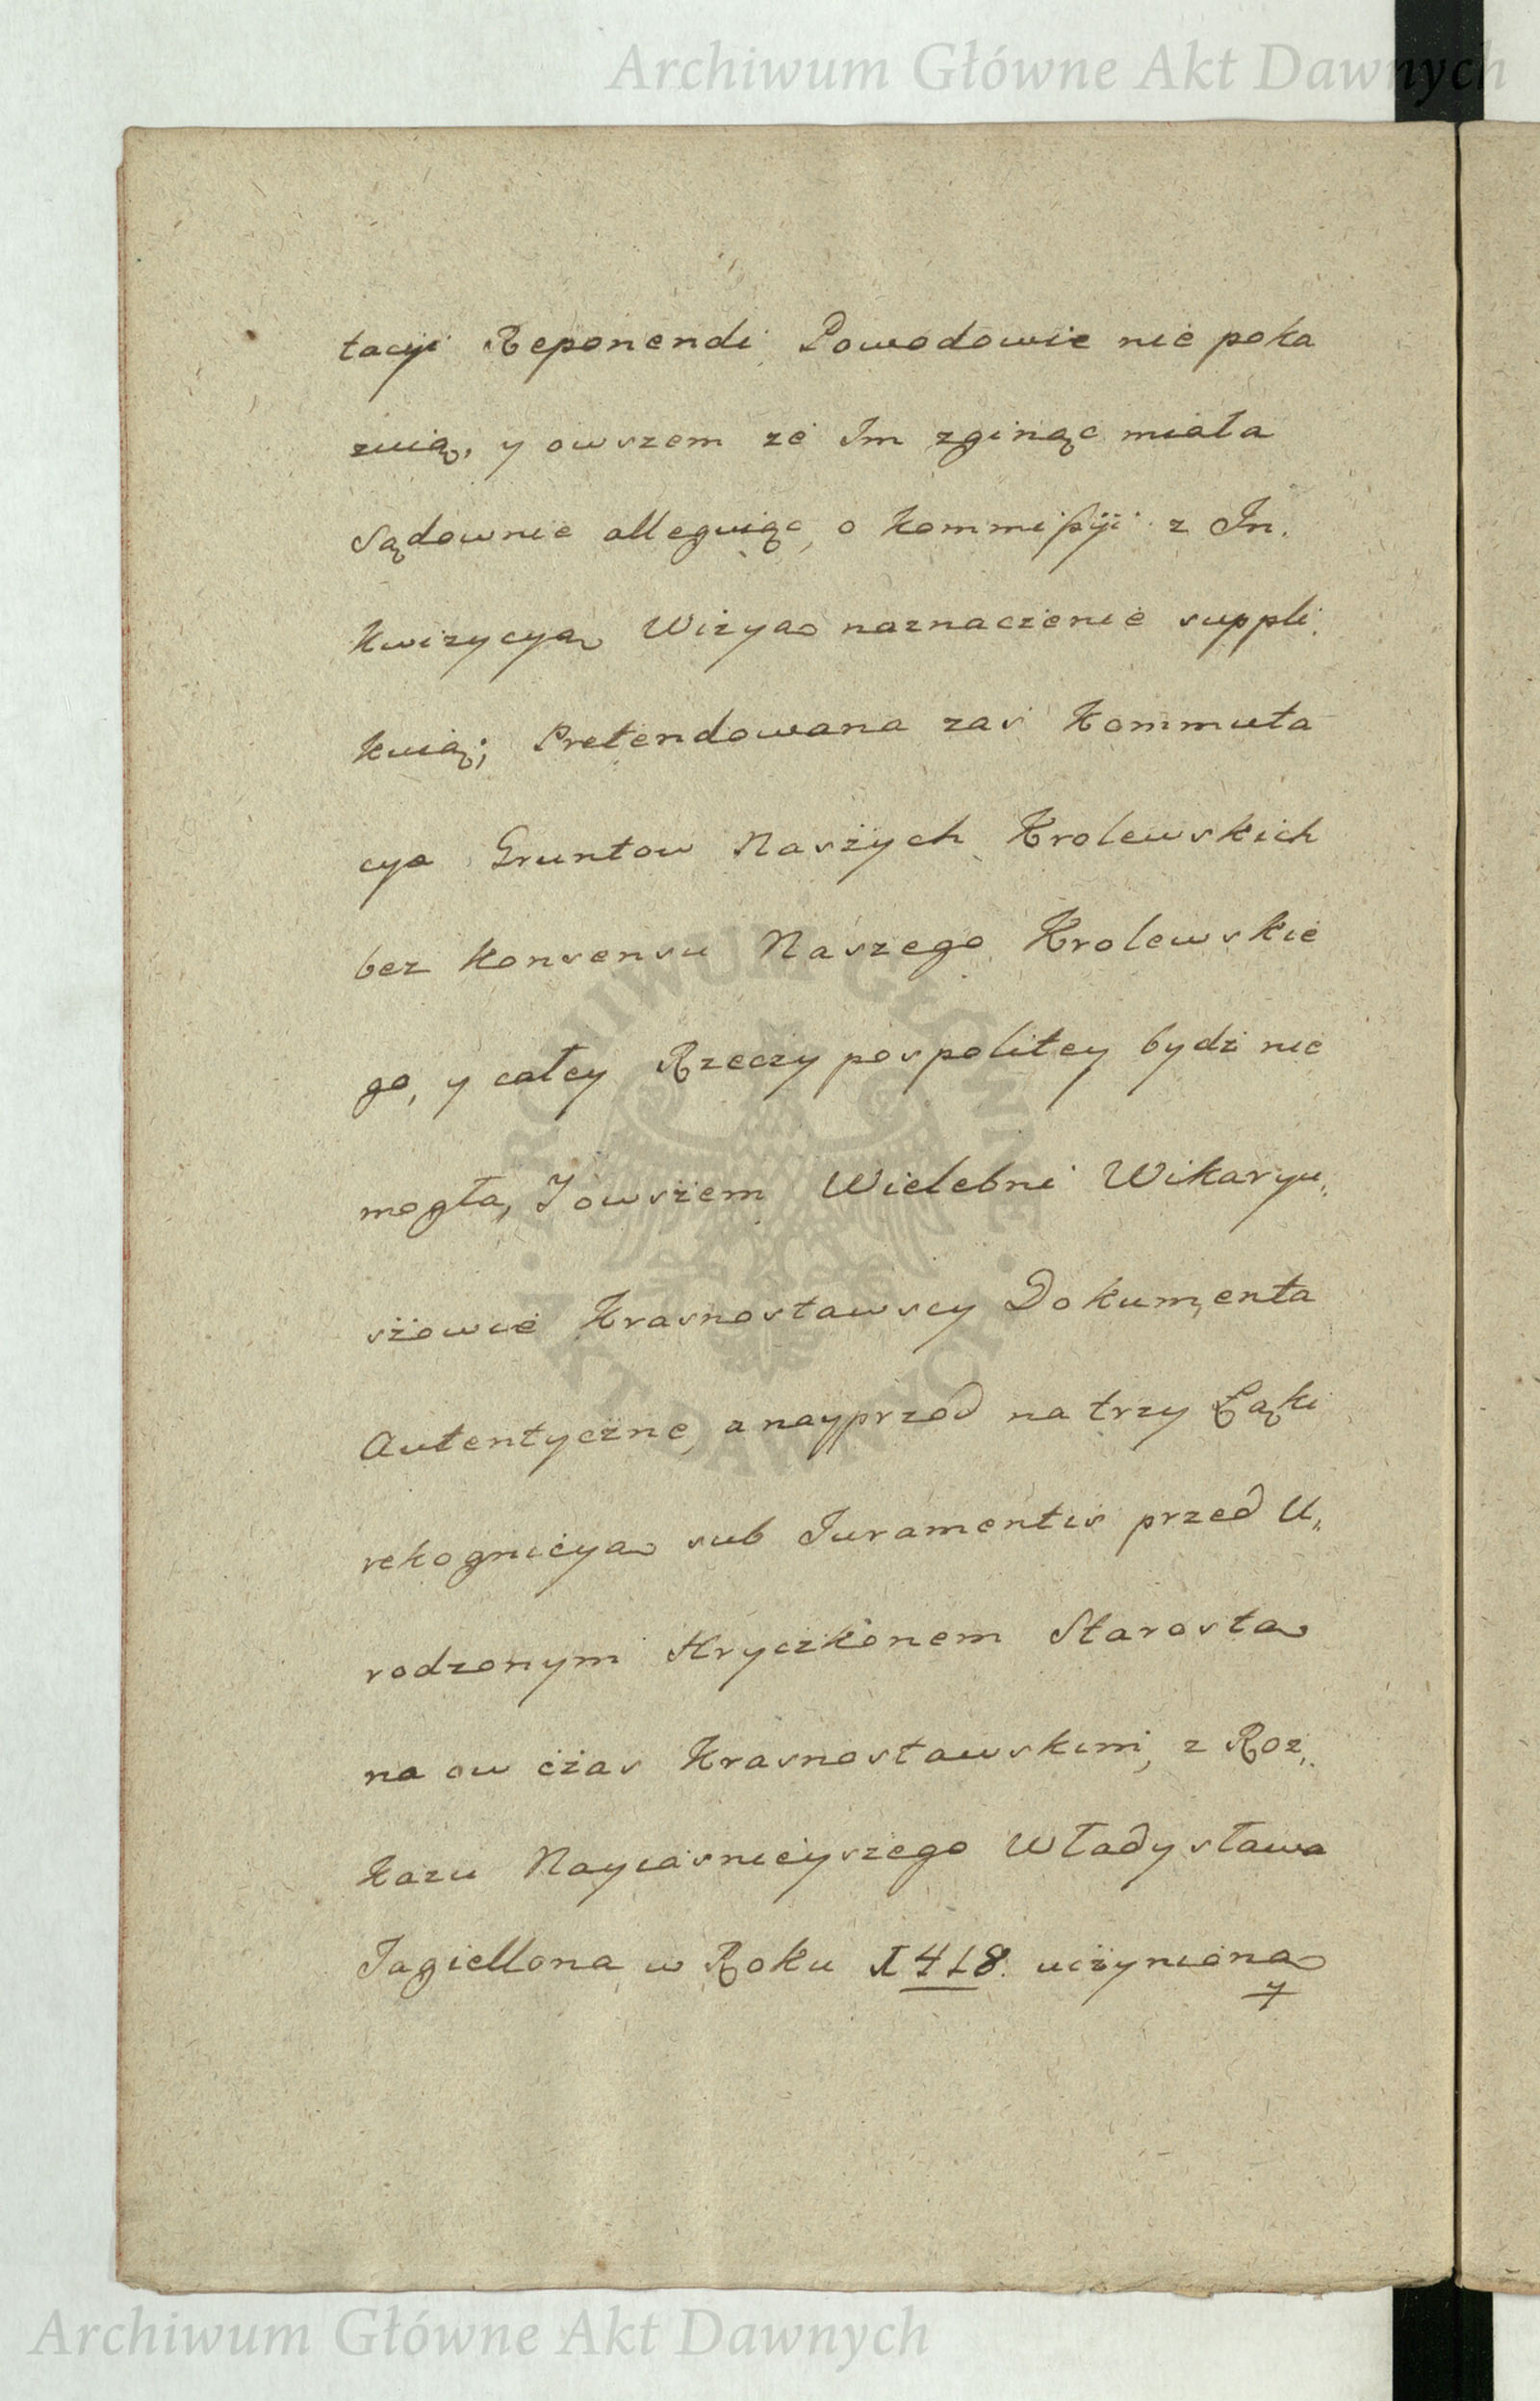 Archiwum Główne Akt Dawnych
tacyi Reponendi Powodowie nie poka
zuią, y owszem ze Im zginąc miała
Sądownie alleguiąc, o kommißyi z In.
kwizycyą Wizyą naznaczenie suppli.
kuią; Pretendowana zas Kommuta
cya Gruntow Naszych Krolewskich
bez konsensu Naszego Krolewskie
go, y całey Rzeczypospolitey bydz nie
mogła, Iowszem Wielebni Wikaryu„
szowie Krasnostawscy Dokumenta
Autentyczne, a nayprzod na trzy Łąki
rekognicyą sub Iuramentis przed U„
rodzonym Hryczkonem Starostą
na ow czas Krasnostawskim, z Roz„
kazu Nayiasnieyszego Władysława
Iagiellona w Roku 1418. uczynioną
y
ARCHIWUM GŁÓWNE • AKT DAWNYCH •
Archiwum Główne Akt Dawnych